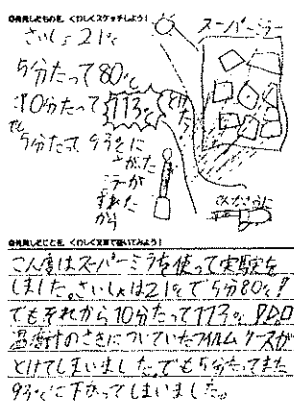 ◎発見したものを、くわしくスケッチしよう!
さいしょ21℃
5分たって80℃
10分たって
113℃
でも
5分たって、93℃に
さがった
ミラーが
ずれた
から
スーパーミラー
◎発見したことを、くわしく文章で書いてみよう!
こん度はスーパーミラを使って実験を
しました。さいしょは21℃で5分80℃!
でもそれから10分たって113℃
温度計のさきについていたフィルムケースが
とけてしまいました。でも5分たってまた
93℃に下がってしまいました。